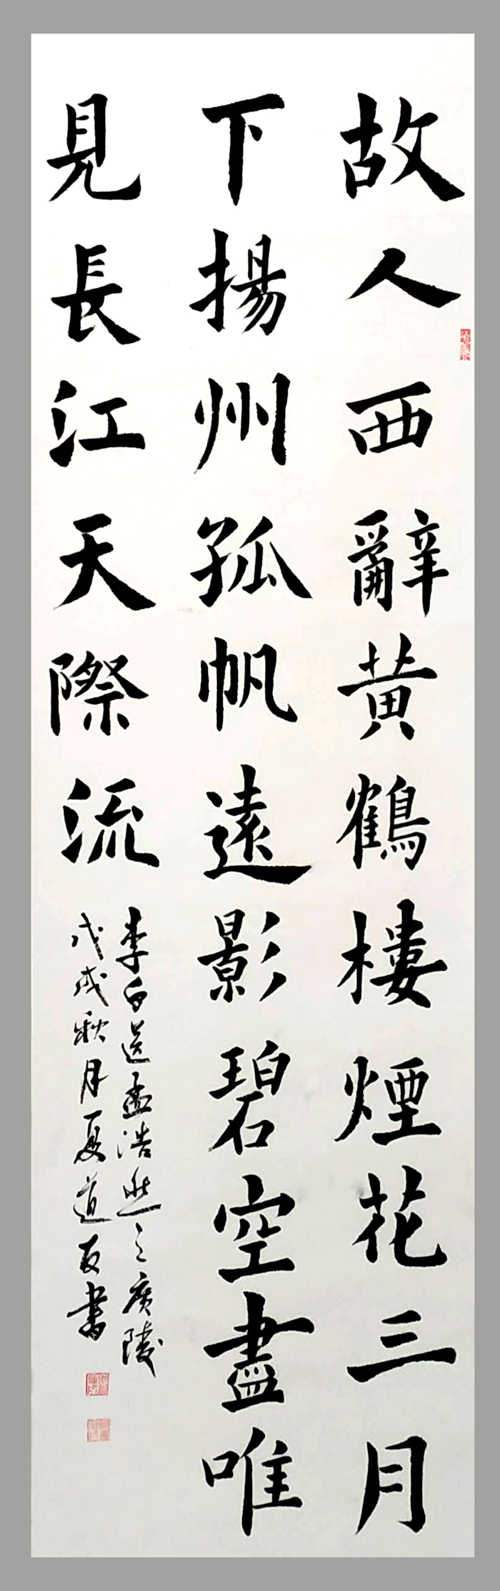 故人西辭黄鶴樓煙花三月
下揚州孤帆遠影碧空盡唯
見長江天際流
李白送孟浩然之廣陵
戊戌秋月夏道友書